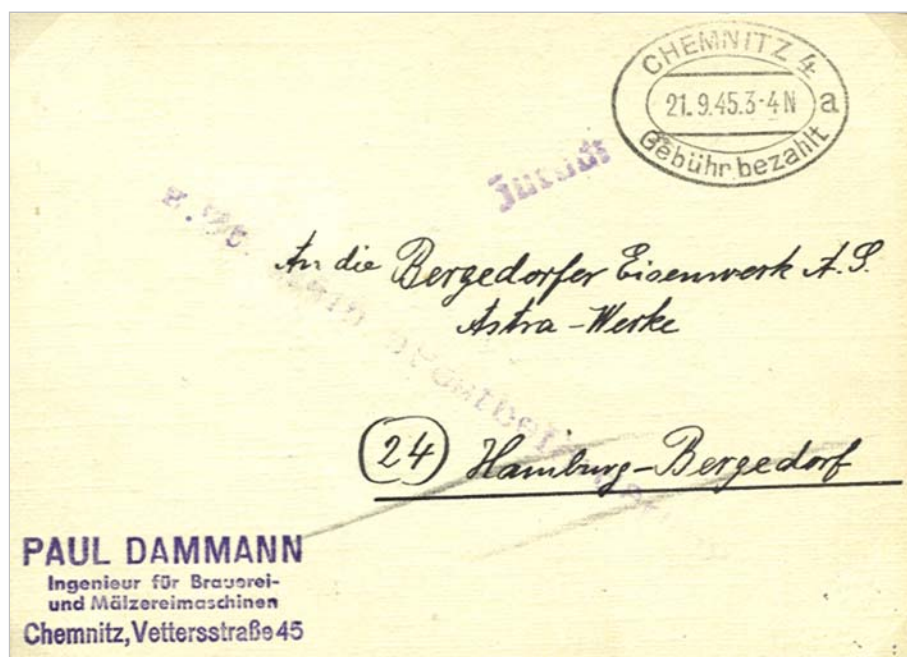 CHEMNITZ 4
21.9.45.3-4N a
Gebühr bezahlt
Zurück
z. Zt.
An die Bergedorfer Eisenwerk A.G.
Astra-Werke
24 Hamburg-Bergedorf
PAUL DAMMANN
Ingenieur für Brauerei-
und Mälzereimaschinen
Chemnitz, Vettersstraße 45